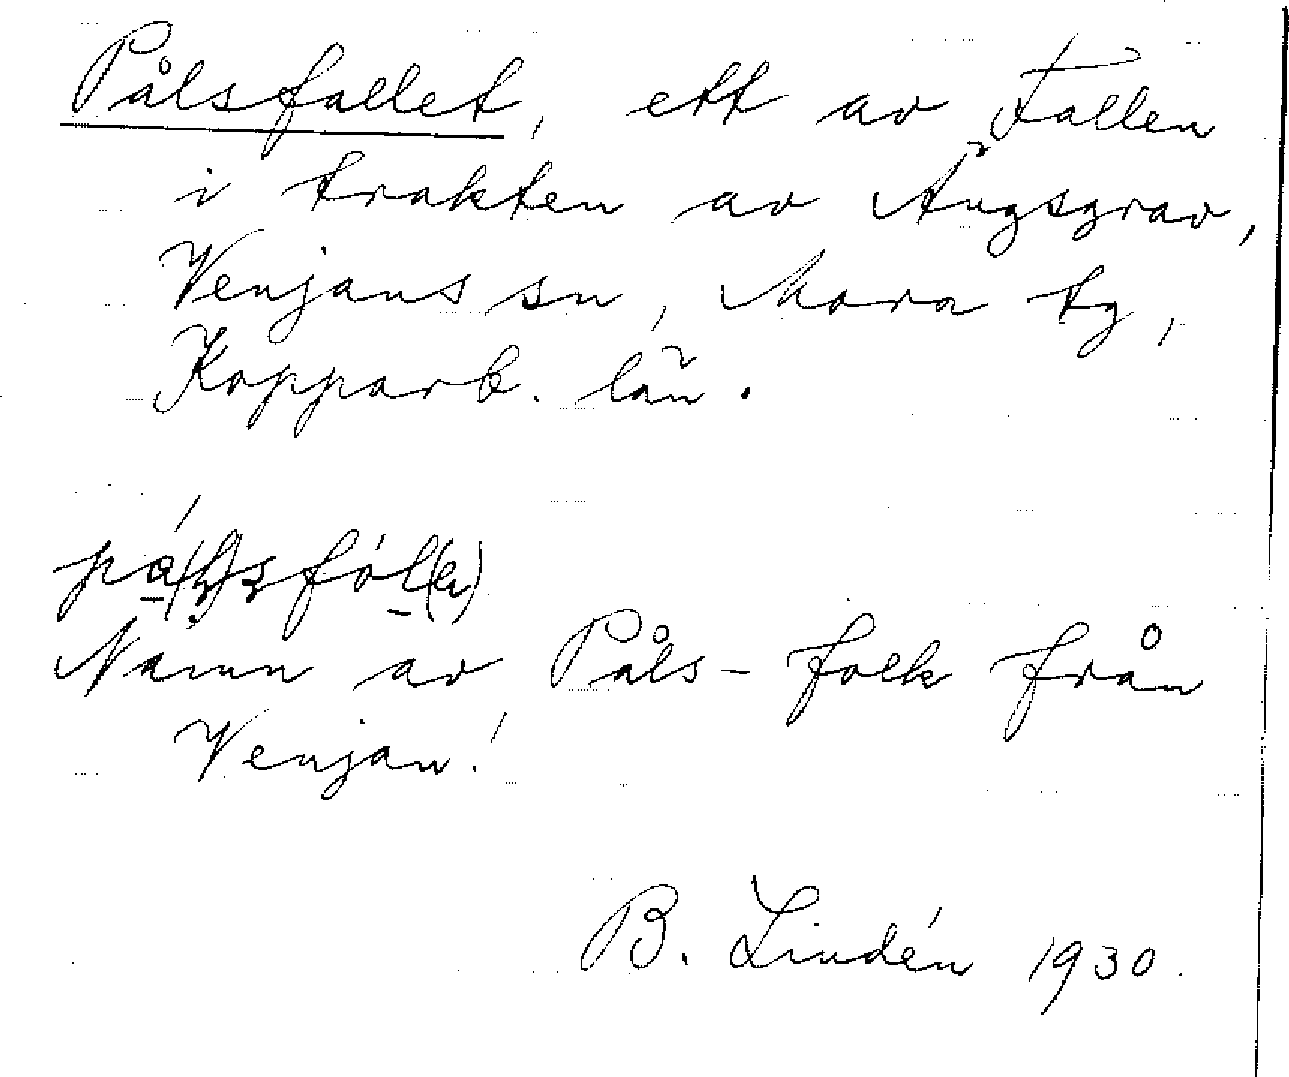 Pålsfallet, ett av Fallen
i trakten av Ängsgrav,
Venjans sn, Mora tg,
Kopparb. län.
Namn av Påls-folk från
Venjan!
B. Lindén 1930.